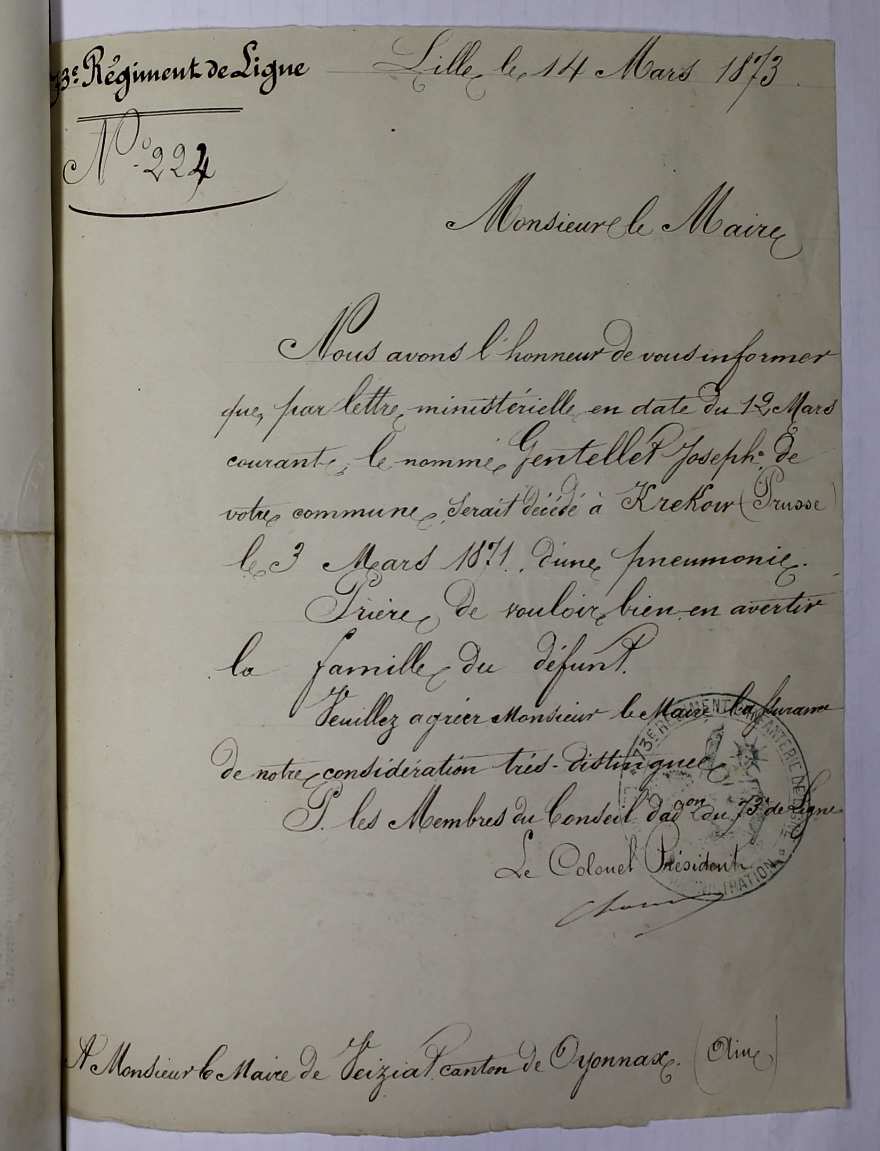 73e Régiment de Ligne
Lille le 14 Mars 1873
No 224
Monsieur le Maire
Nous avons l'honneur de vous informer
que, par lettre ministérielle en date du 12 Mars
courant, le nommé Gentellet Joseph de
votre commune, serait décédé à Krekow (Prusse)
le 3 Mars 1871, d'une pneumonie.
Prière de vouloir bien en avertir
la famille du défunt.
Veuillez agréer Monsieur le Maire
de notre considération très-distinguée
P. les Membres du Conseil d'adon du 73e de Ligne
Le Colonel Président
73E REGIMENT D'INFANTERIE DE LIGNE
ADMINISTRATION
A Monsieur le Maire de Veiziat canton de Oyonnax (Ain)